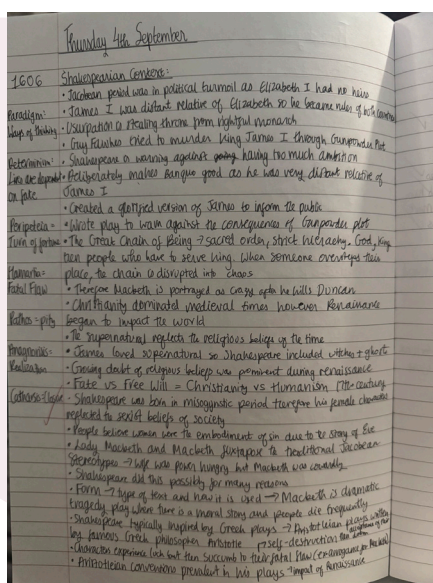 Thursday 4th September
1606
Shakespearian Context:
• Jacobean period was in political turmoil as Elizabeth I had no heirs
Paradigm:
• James I was distant relative of Elizabeth so he became ruler of both countries
Ways of thinking
• Usurpation is stealing throne from rightful monarch
• Guy Fawkes tried to murder King James I through Gunpowder Plot
Determinism:
• Shakespeare is warning against having too much ambition
Lives are dependent
• Deliberately makes Banquo good as he was very distant relative of
on fate
James I
• Created a glorified version of James to inform the public
Peripeteia =
• Wrote play to warn against the consequences of Gunpowder plot
Turn of fortune
• The Great Chain of Being → sacred order, strict hierachy. God, King
then people who have to serve King. When someone oversteps their
Hamartia =
place, the chain is disrupted into chaos
Fatal Flaw
• Therefore Macbeth is portrayed as crazy after he kills Duncan
• Christianity dominated medieval times however Renaissance
Pathos = pity
began to impact the world
• The supernatural reflects the religious beliefs of the time
Anagnorisis =
• James loved supernatural so Shakespeare included witches + ghost
Realisation
• Growing doubt of religious beliefs was prominent during renaissance
• Fate vs Free Will = Christianity vs Humanism 17th century
Catharsis =
• Shakespeare was born in misogynistic period therefore his female characters
reflected to sexist beliefs of society
• People believe women were the embodiment of sin due to te story of Eve
• Lady Macbeth and Macbeth juxtapose te traditional Jacobean
stereotypes → wife was power hungry but Macbeth was cowardly
• Shakespeare did this possibly for many reasons
• Form → type of text and how it is used → Macbeth is dramatic
tragedy play where there is a moral story and people die frequently
• Shakespeare typically inspired by Greek plays → Aristotelian plays written
by famous Greek philosopher Aristotle → self-destruction
• Characters experience luck but then succumb to their fatal flaw
• Aristotelian conventions prevalent in his plays → impact of Renaissance